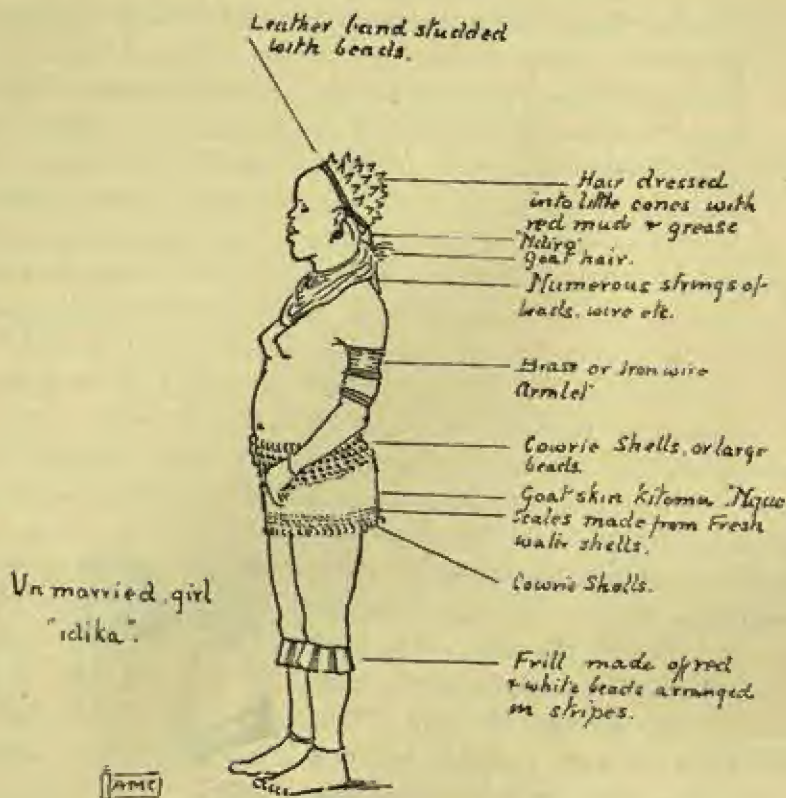 Leather band studded
with beads.
Hair dressed
into little cones with
red mud & grease
"Ndiro"
Goat hair.
Numerous strings of
beads, wire etc.
Brass or Iron wire
Armlet
Cowrie Shells, or large
beads
Goat skin Kitomu "Nguo
Scales made from Fresh
water shells.
Cowrie Shells.
Unmarried girl
"idika".
Frill made of red
& white beads arranged
in stripes.
AMC